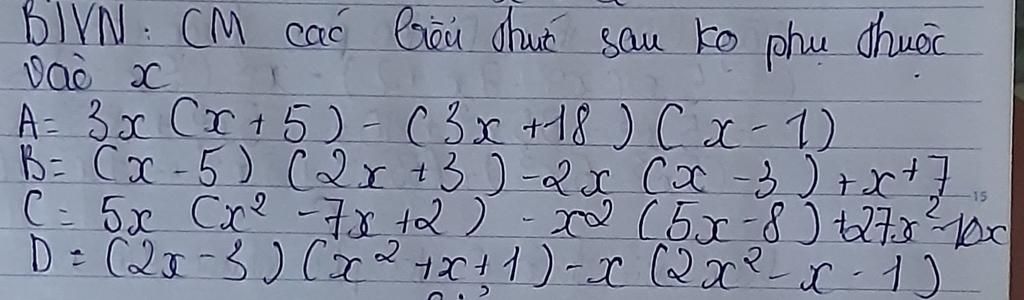 BTVN: CM các biểu thức sau ko phụ thuộc
vào x
A = 3x (x + 5) - (3x + 18) (x - 1)
B = (x - 5) (2x + 3) - 2x (x - 3) + x + 7
C = 5x (x² - 7x + 2) - x² (5x - 8) + 27x² - 10x
D = (2x - 3) (x² + x + 1) - x (2x² - x - 1)
15